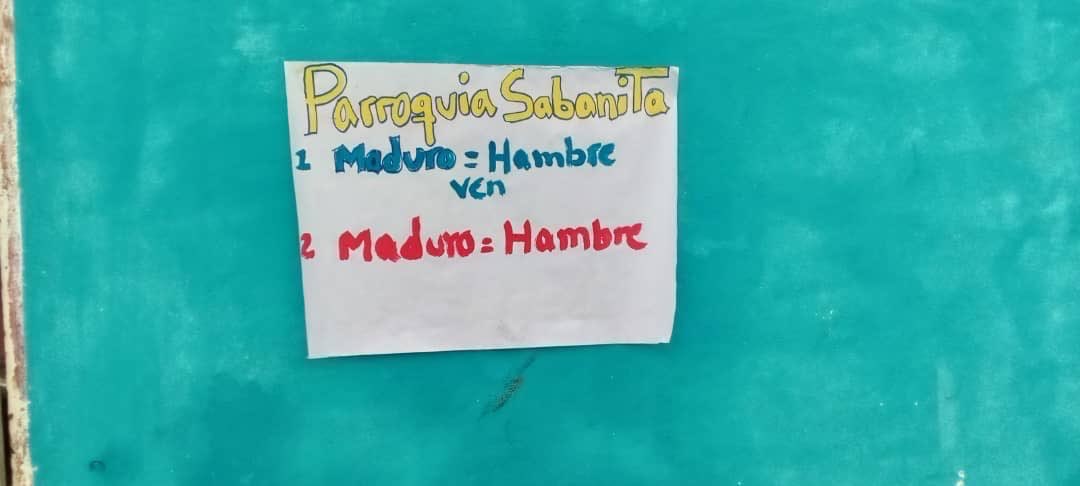 Parroquia SabaniTa
1 Maduro = Hambre
ven
2 Maduro = Hambre